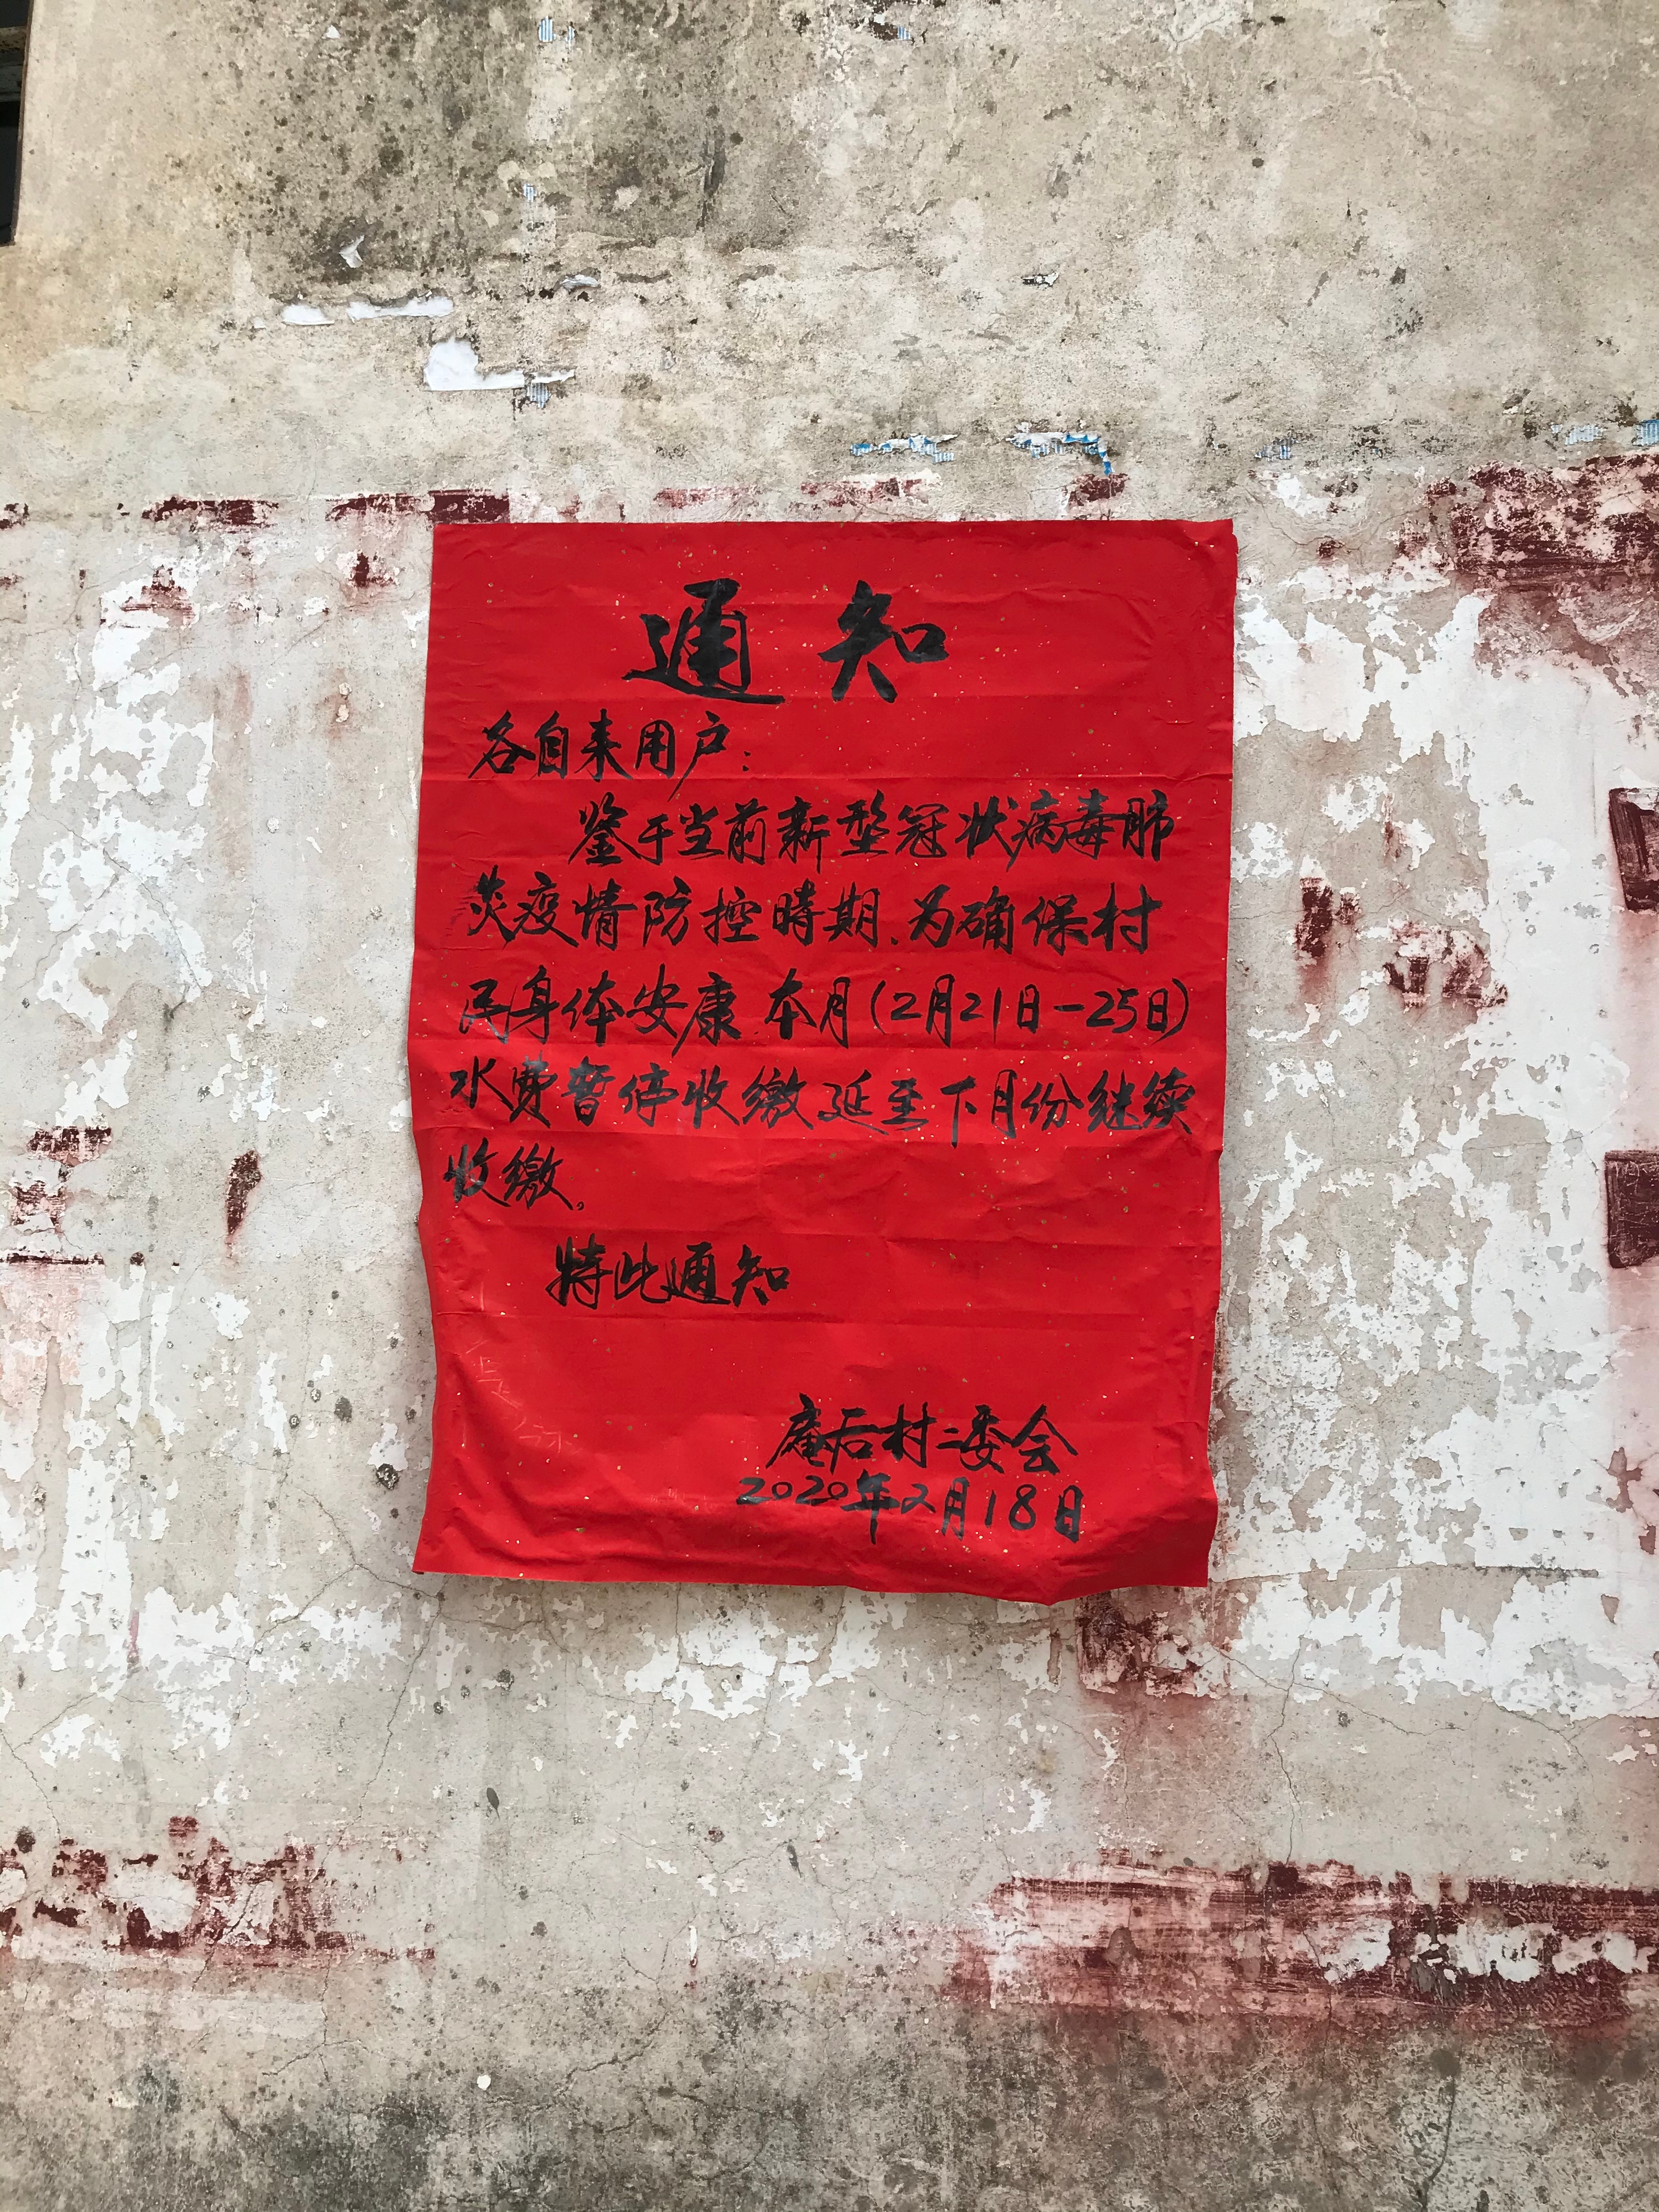 通知
各自来用户:
鉴于当前新型冠状病毒肺
炎疫情防控时期.为确保村
民身体安康.本月(2月21日-25日)
水费暂停收缴延至下月份继续
收缴。
特此通知
庵后村二委会
2020年2月18日